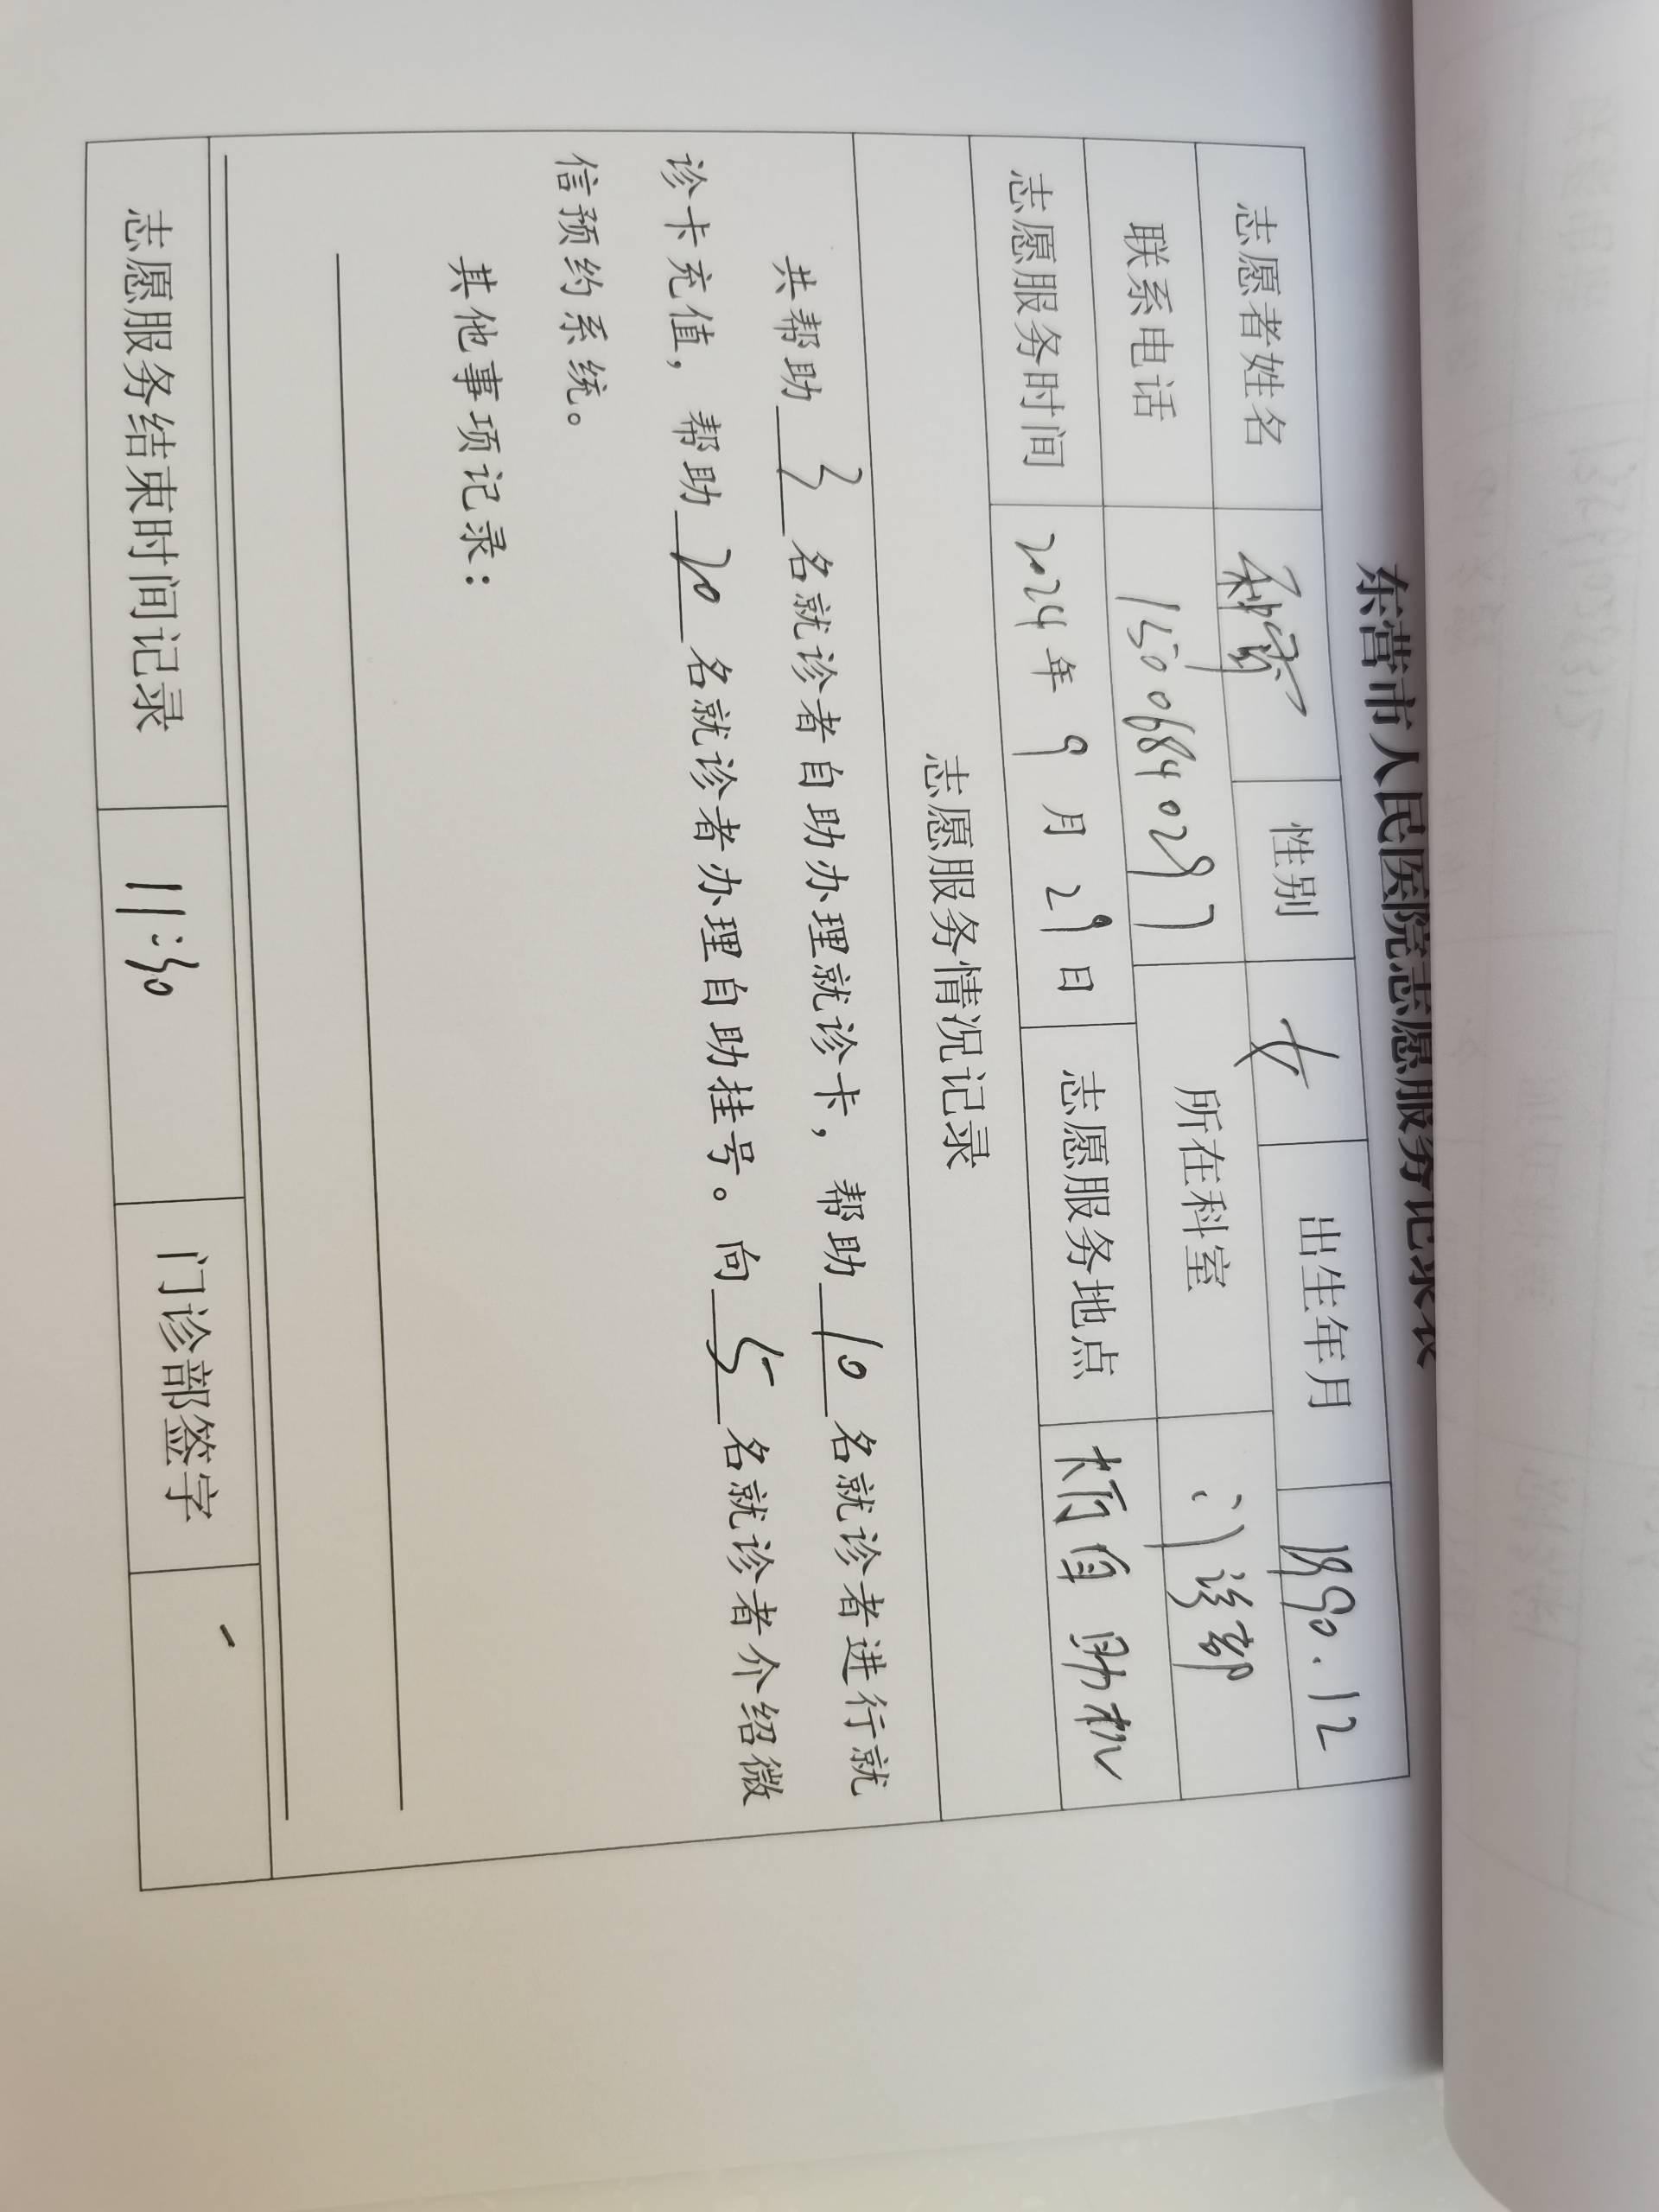 东营市人民医院志愿服务记录表
志愿者姓名 性别 女 出生年月 1990.12
联系电话 15006840297 所在科室 门诊部
志愿服务时间 2024年9月29日 志愿服务地点 自助机
志愿服务情况记录
共帮助 3 名就诊者自助办理就诊卡，帮助 10 名就诊者进行就
诊卡充值，帮助 20 名就诊者办理自助挂号。向 5 名就诊者介绍微
信预约系统。
其他事项记录：
志愿服务结束时间记录 11:30 门诊部签字